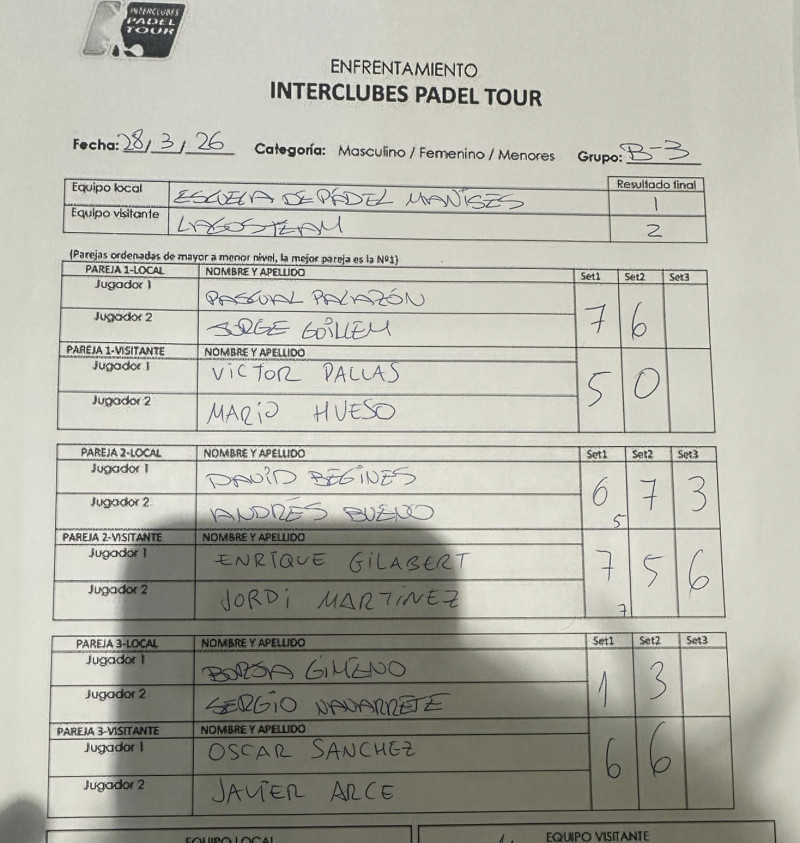 INTERCLUBES
PADEL
TOUR
ENFRENTAMIENTO
INTERCLUBES PADEL TOUR
Fecha: 28/3/26 Categoría: Masculino / Femenino / Menores Grupo: B-3
Equipo local ESCUELA DE PÁDEL MANISES Resultado final 1
Equipo visitante LAGOSTEAM 2
(Parejas ordenadas de mayor a menor nivel, la mejor pareja es la Nº1)
PAREJA 1-LOCAL NOMBRE Y APELLIDO Set1 Set2 Set3
Jugador 1 PASCUAL PALAZÓN
Jugador 2 JORGE GUILLEM 7 6
PAREJA 1-VISITANTE NOMBRE Y APELLIDO
Jugador 1 VICTOR PALLAS
Jugador 2 MARIO HUESO 5 0
PAREJA 2-LOCAL NOMBRE Y APELLIDO Set1 Set2 Set3
Jugador 1 DAVID BEGINES
Jugador 2 ANDRÉS BUENO 6 5 7 3
PAREJA 2-VISITANTE NOMBRE Y APELLIDO
Jugador 1 ENRIQUE GILABERT
Jugador 2 JORDI MARTINEZ 7 7 5 6
PAREJA 3-LOCAL NOMBRE Y APELLIDO Set1 Set2 Set3
Jugador 1 BORJA GIMENO
Jugador 2 SERGIO NAVARRETE 1 3
PAREJA 3-VISITANTE NOMBRE Y APELLIDO
Jugador 1 OSCAR SANCHEZ
Jugador 2 JAVIER ARCE 6 6
EQUIPO LOCAL EQUIPO VISITANTE